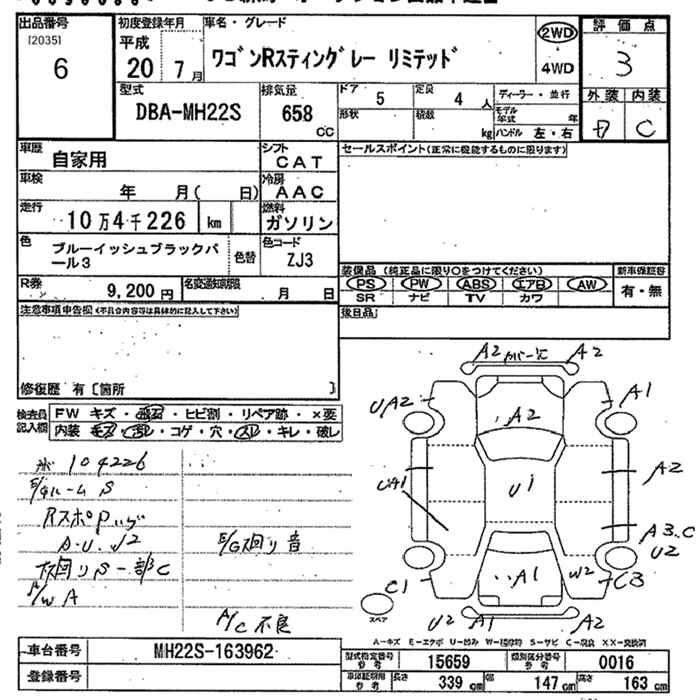 出品番号
[2035]
6
初度登録年月
平成
20 7月
車名・グレード
ワゴンRスティングレー リミテッド
2WD
4WD
評価点
3
外装 内装
C
型式
DBA-MH22S
排気量
658 CC
ドア 5
定員 4 人
形状
積載 kg
ディーラー・並行
モデル年式 年
ハンドル 左・右
車歴
自家用
シフト
CAT
車検
年 月( 日)
冷房
AAC
走行
10万4千226 km
燃料
ガソリン
色
ブルーイッシュブラックパール3
色替
色コード
ZJ3
R券
9,200円
名変通知期限
月 日
セールスポイント(正常に機能するものに限ります)
装備品 (純正品に限り○をつけてください)
新車保証書
PS PW ABS エアB AW
有・無
SR ナビ TV カワ
後日品
注意事項申告欄(不具合内容等は具体的に記入して下さい)
修復歴 有〔箇所 〕
検査員記入欄
FW キズ・飛石・ヒビ割・リペア跡・×要
内装 キズ・汚レ・コゲ・穴・スレ・キレ・破レ
104226
E/gルーム S
A・U.√2
下回りS一部C
A/W A
E/G回り音
A/C不良
A2 カバー A2
UA2
A1
A2
U1
UA1
A2
A3.C
U2
C1
A1
W2
C3
U2 A1 A2
スペア
A-キズ E-エクボ U-凹み W-補修跡 S-サビ C-腐食 XX-交換済
車台番号
MH22S-163962
登録番号
型式指定番号 参考
15659
類別区分番号 参考
0016
車検証寸法 参考
長さ 339 cm
幅 147 cm
高さ 163 cm